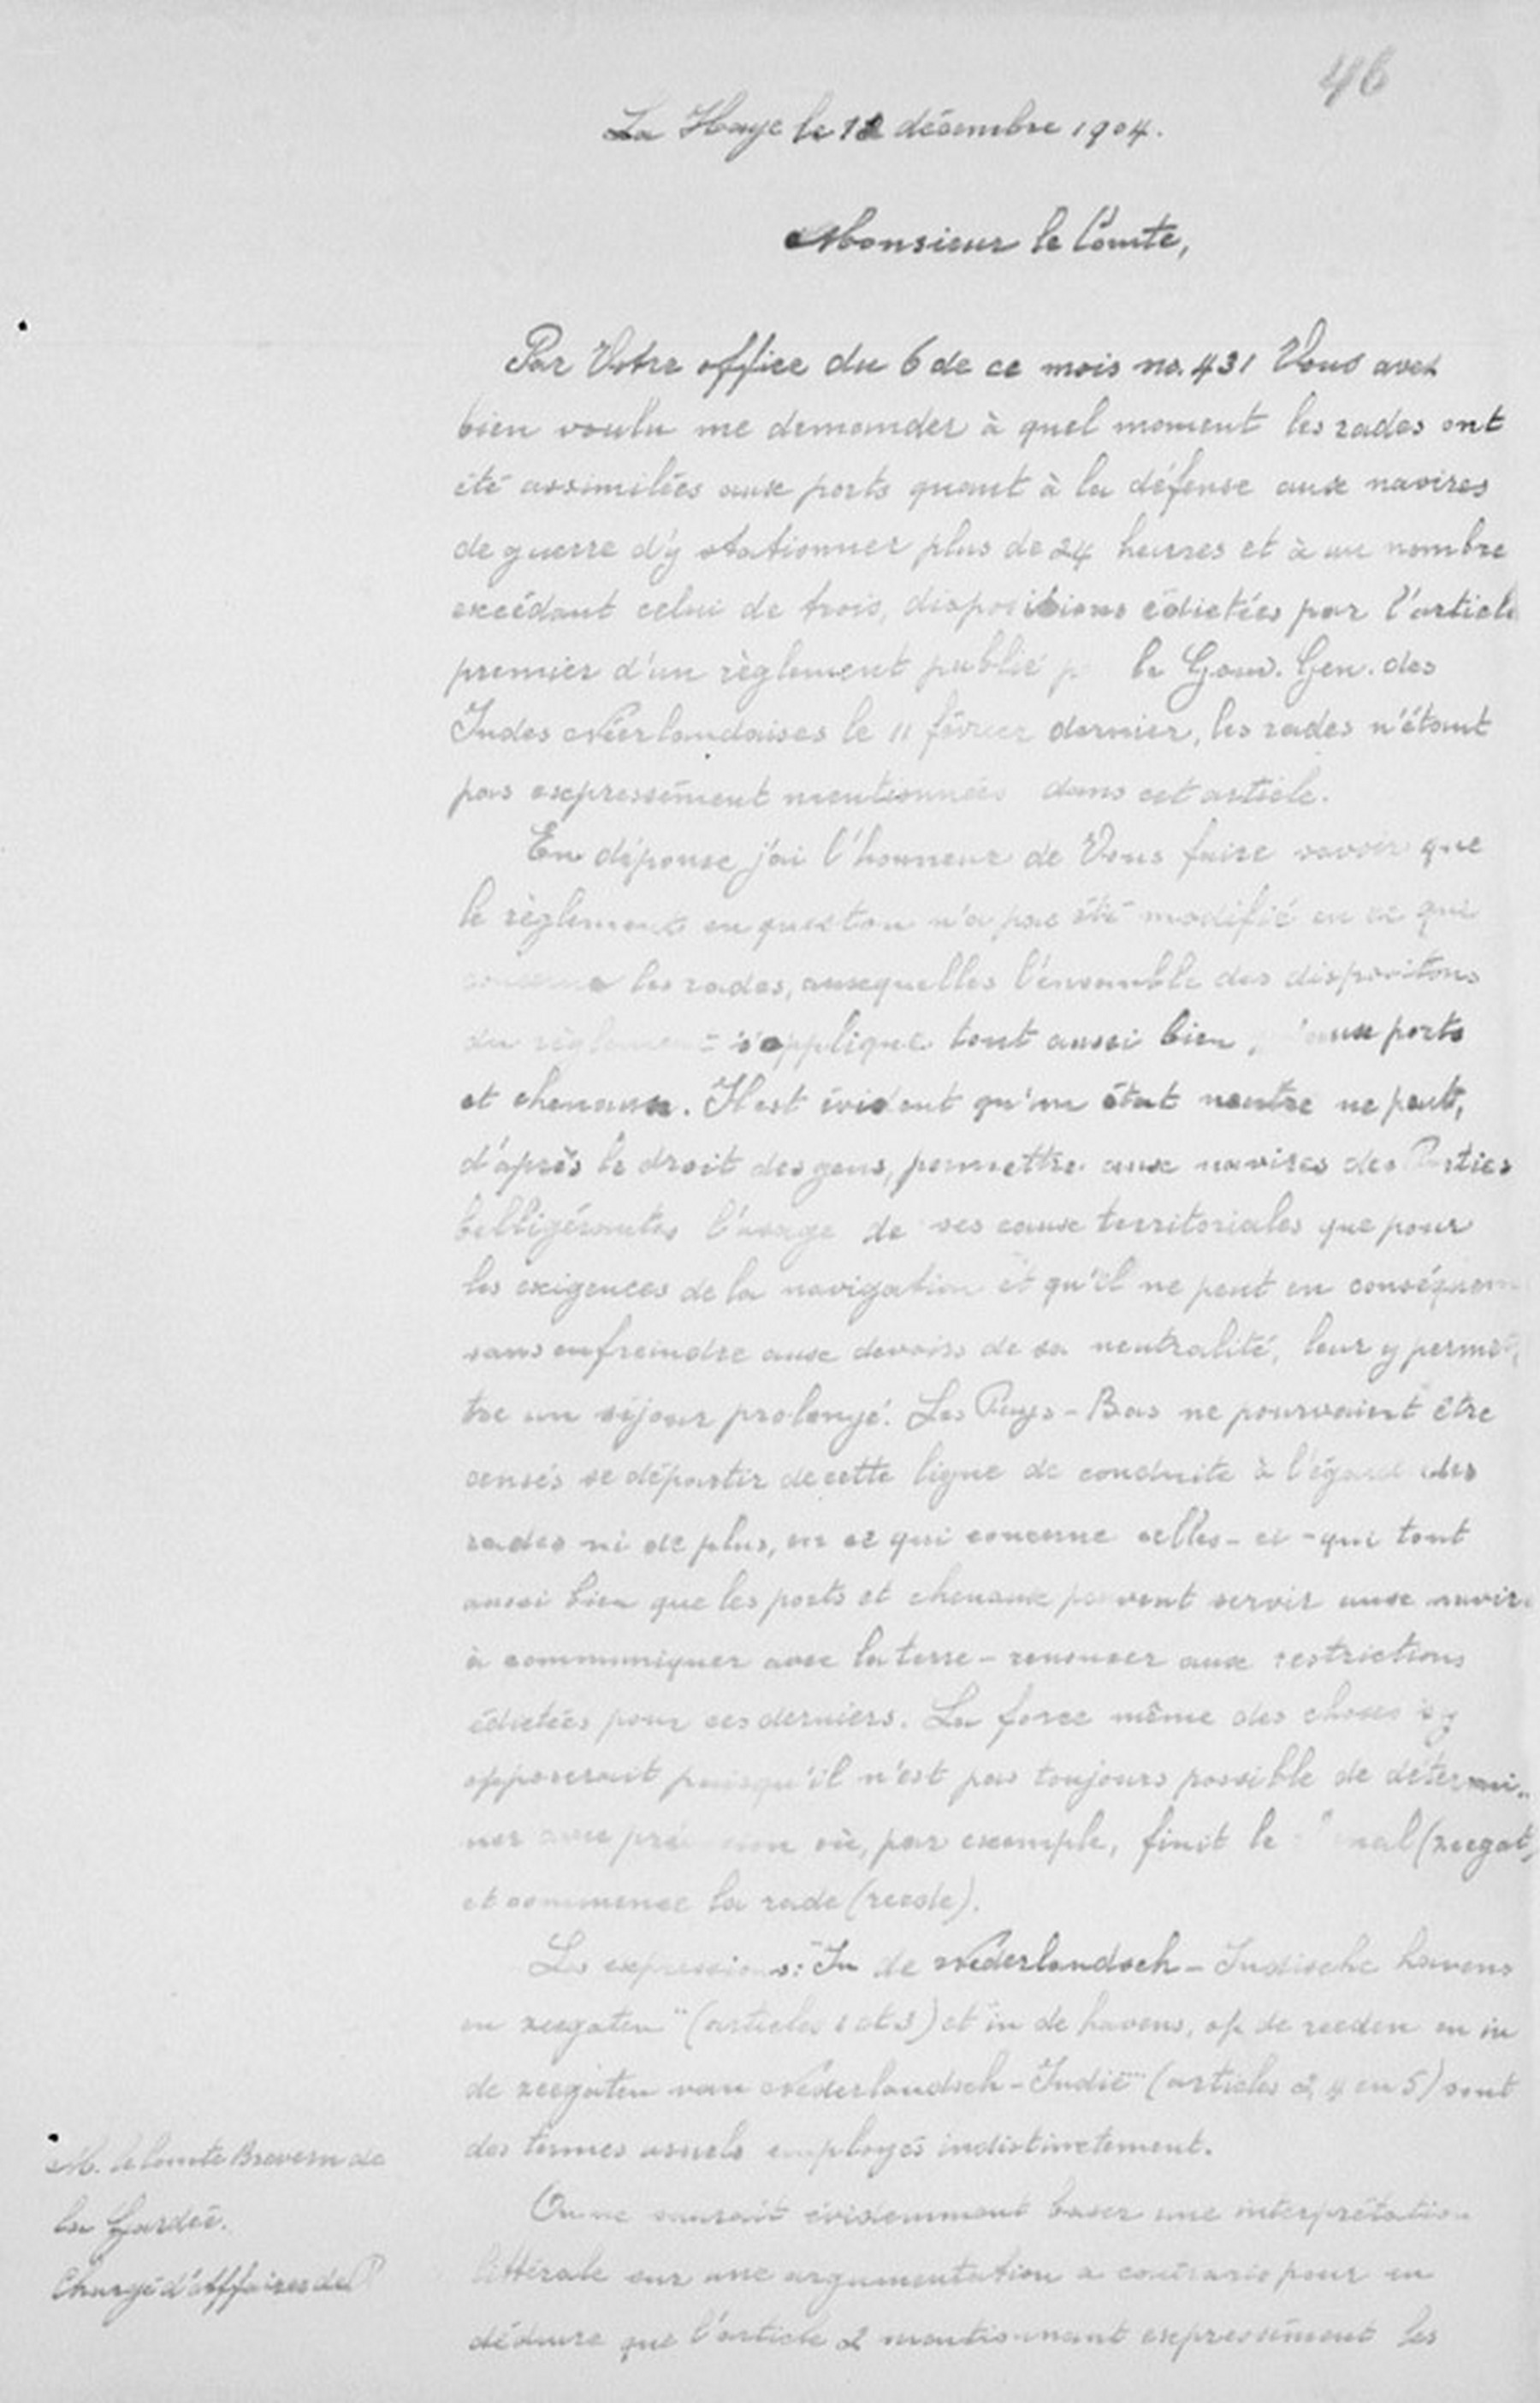 46
La Haye le 12 décembre 1904.
Monsieur le Comte,
Par Votre office du 6 de ce mois no. 431 Vous avez
bien voulu me demander à quel moment les rades ont
été assimilées aux ports quant à la défense aux navires
de guerre d'y stationner plus de 24 heures et à un nombre
excédant celui de trois, dispositions édictées par l'article
premier d'un règlement publié p le Gouv. Gen. des
Indes Néerlandaises le 11 février dernier, les rades n'étant
pas expressément mentionnées dans cet article.
En réponse j'ai l'honneur de Vous faire savoir que
le règlement en question n'a pas été modifié en ce qui
concerne les rades, auxquelles l'ensemble des dispositons
du règlement s'applique tout aussi bien aux ports
et chenaux. Il est évident qu'un état neutre ne peut,
d'après le droit des gens, permettre aux navires des Parties
belligérantes l'usage de ses eaux territoriales que pour
les exigences de la navigation et qu'il ne peut en conséquen
sans enfreindre aux devoirs de sa neutralité, leur y permet-
tre un séjour prolongé. Les Pays-Bas ne pourvaient être
censés se départir de cette ligne de conduite à l'égard des
rades ni de plus, en ce qui concerne celles-ci - qui tout
aussi bien que les ports et chenaux peuvent servir aux navire
à communiquer avec la terre - renoncer aux restrictions
édictées pour ces derniers. La force même des choses s'y
opposerait puisqu'il n'est pas toujours possible de détermi-
ner avec précision où, par exemple, finit le nal (zeegat)
et commence la rade (reede).
Les expressions: "In de Nederlandsch-Indische havens
en zeegaten" (articles 1 et 3) et "in de havens, op de reeden en in
de zeegaten van Nederlandsch-Indië" (articles 2, 4 en 5) sont
des termes usuels employés indistinctement.
On ne saurait évidemment baser une interprétation
littérale sur une argumentation a contrario pour en
déduire que l'article 2 mentionnant expressément les
M. le Comte Brevern de
la Gardie.
Chargé d'Affaires de